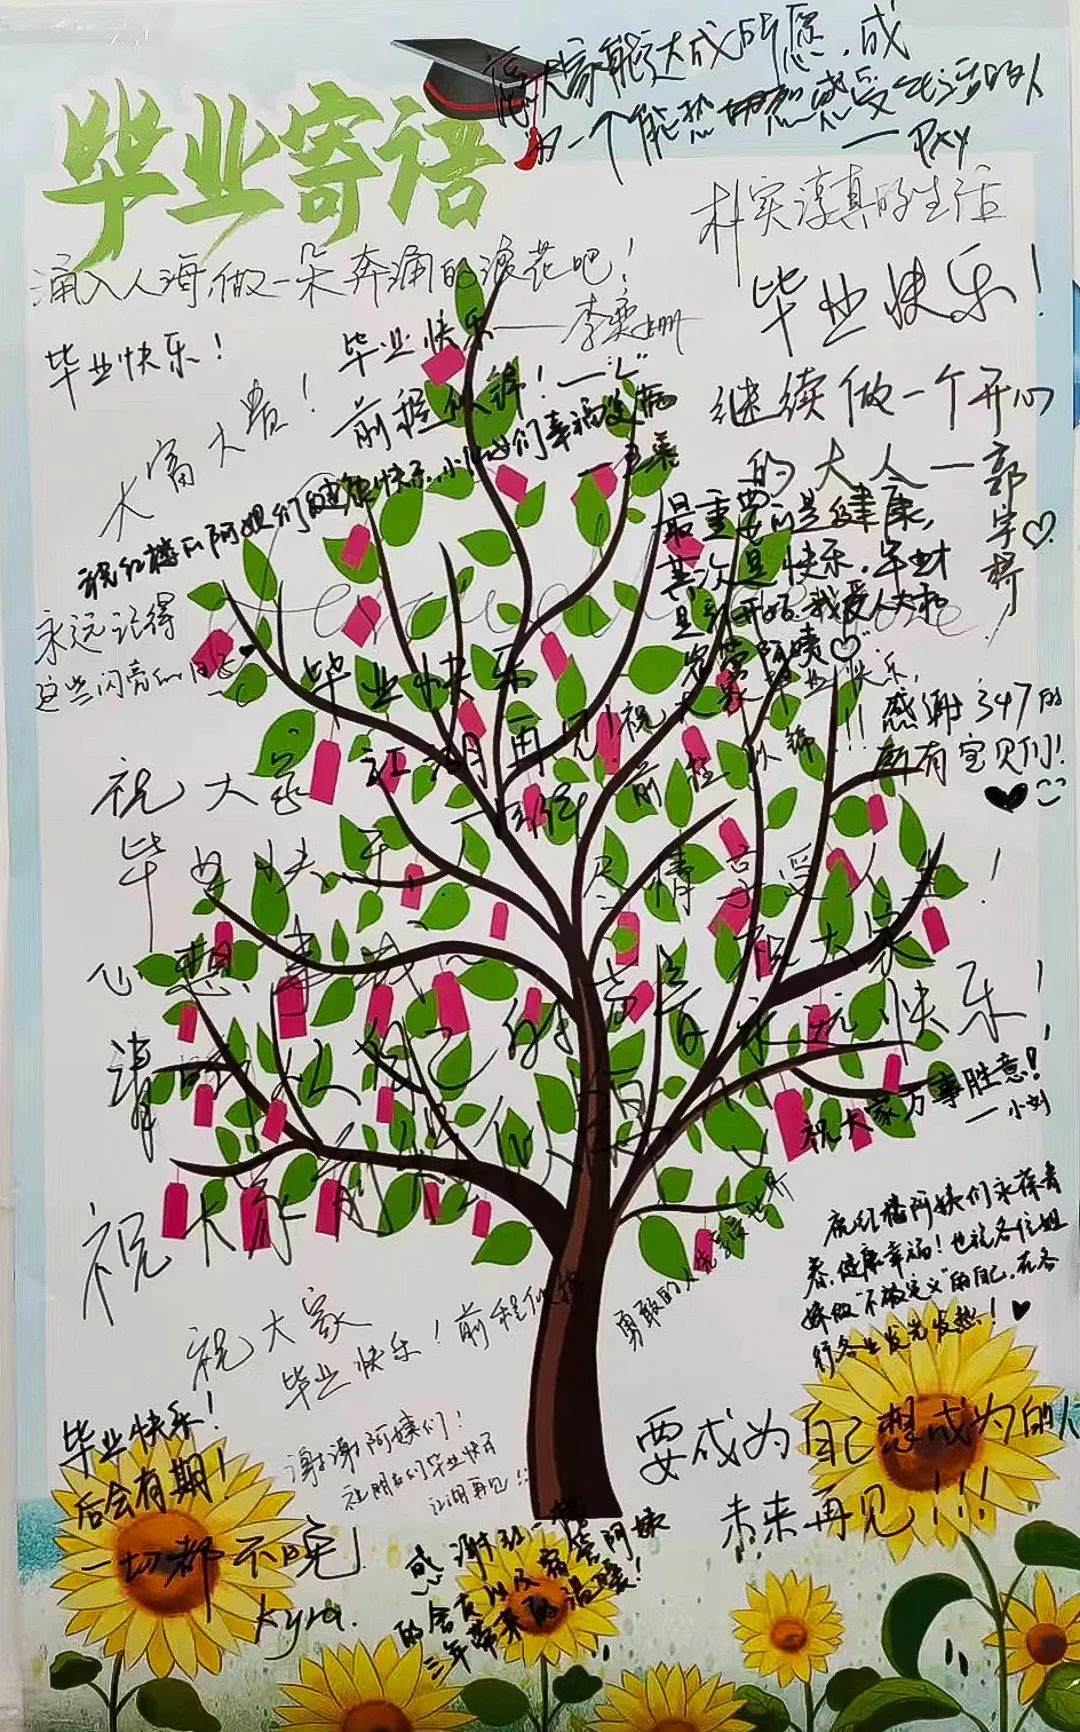 毕业寄语
愿大家能达成所愿，成
为一个能热切地感受生活的人
— PXY
朴实淳真的生活
涌入人海，做一朵奔涌的浪花吧！
毕业快乐！
毕业快乐！
毕业快乐
前程似锦！
大富大贵！
继续做一个开心
的大人 — 郭
祝红楼的阿姨们健康快乐，小姐妹们幸福美满
最重要的是健康，
其次是快乐，毕业
是新开始，我爱人大和
阿姨♡
永远记得
这些闪亮的日子
毕业快乐
江湖再见！
感谢347的
所有宝贝们！
祝大家
毕业快乐
前程似锦！！！
尽情享受人生！
心想事成
祝大家
永远快乐！
请
祝大家万事胜意！
— 小刘
祝大家
祝红楼阿姨们永葆青
春，健康幸福！也祝各位姐
妹做“不被定义”的自己，在各
行各业发光发热！♥
勇敢的人先享受世界
祝大家
毕业快乐！前程似锦
毕业快乐！
后会有期！
谢谢阿姨们！
祝朋友们毕业快乐
江湖再见！！
要成为自己想成为的人
未来再见！！！
一切都不晚！
Kyra.
感谢红一楼
的舍友以及宿管阿姨
三年带来的温暖！